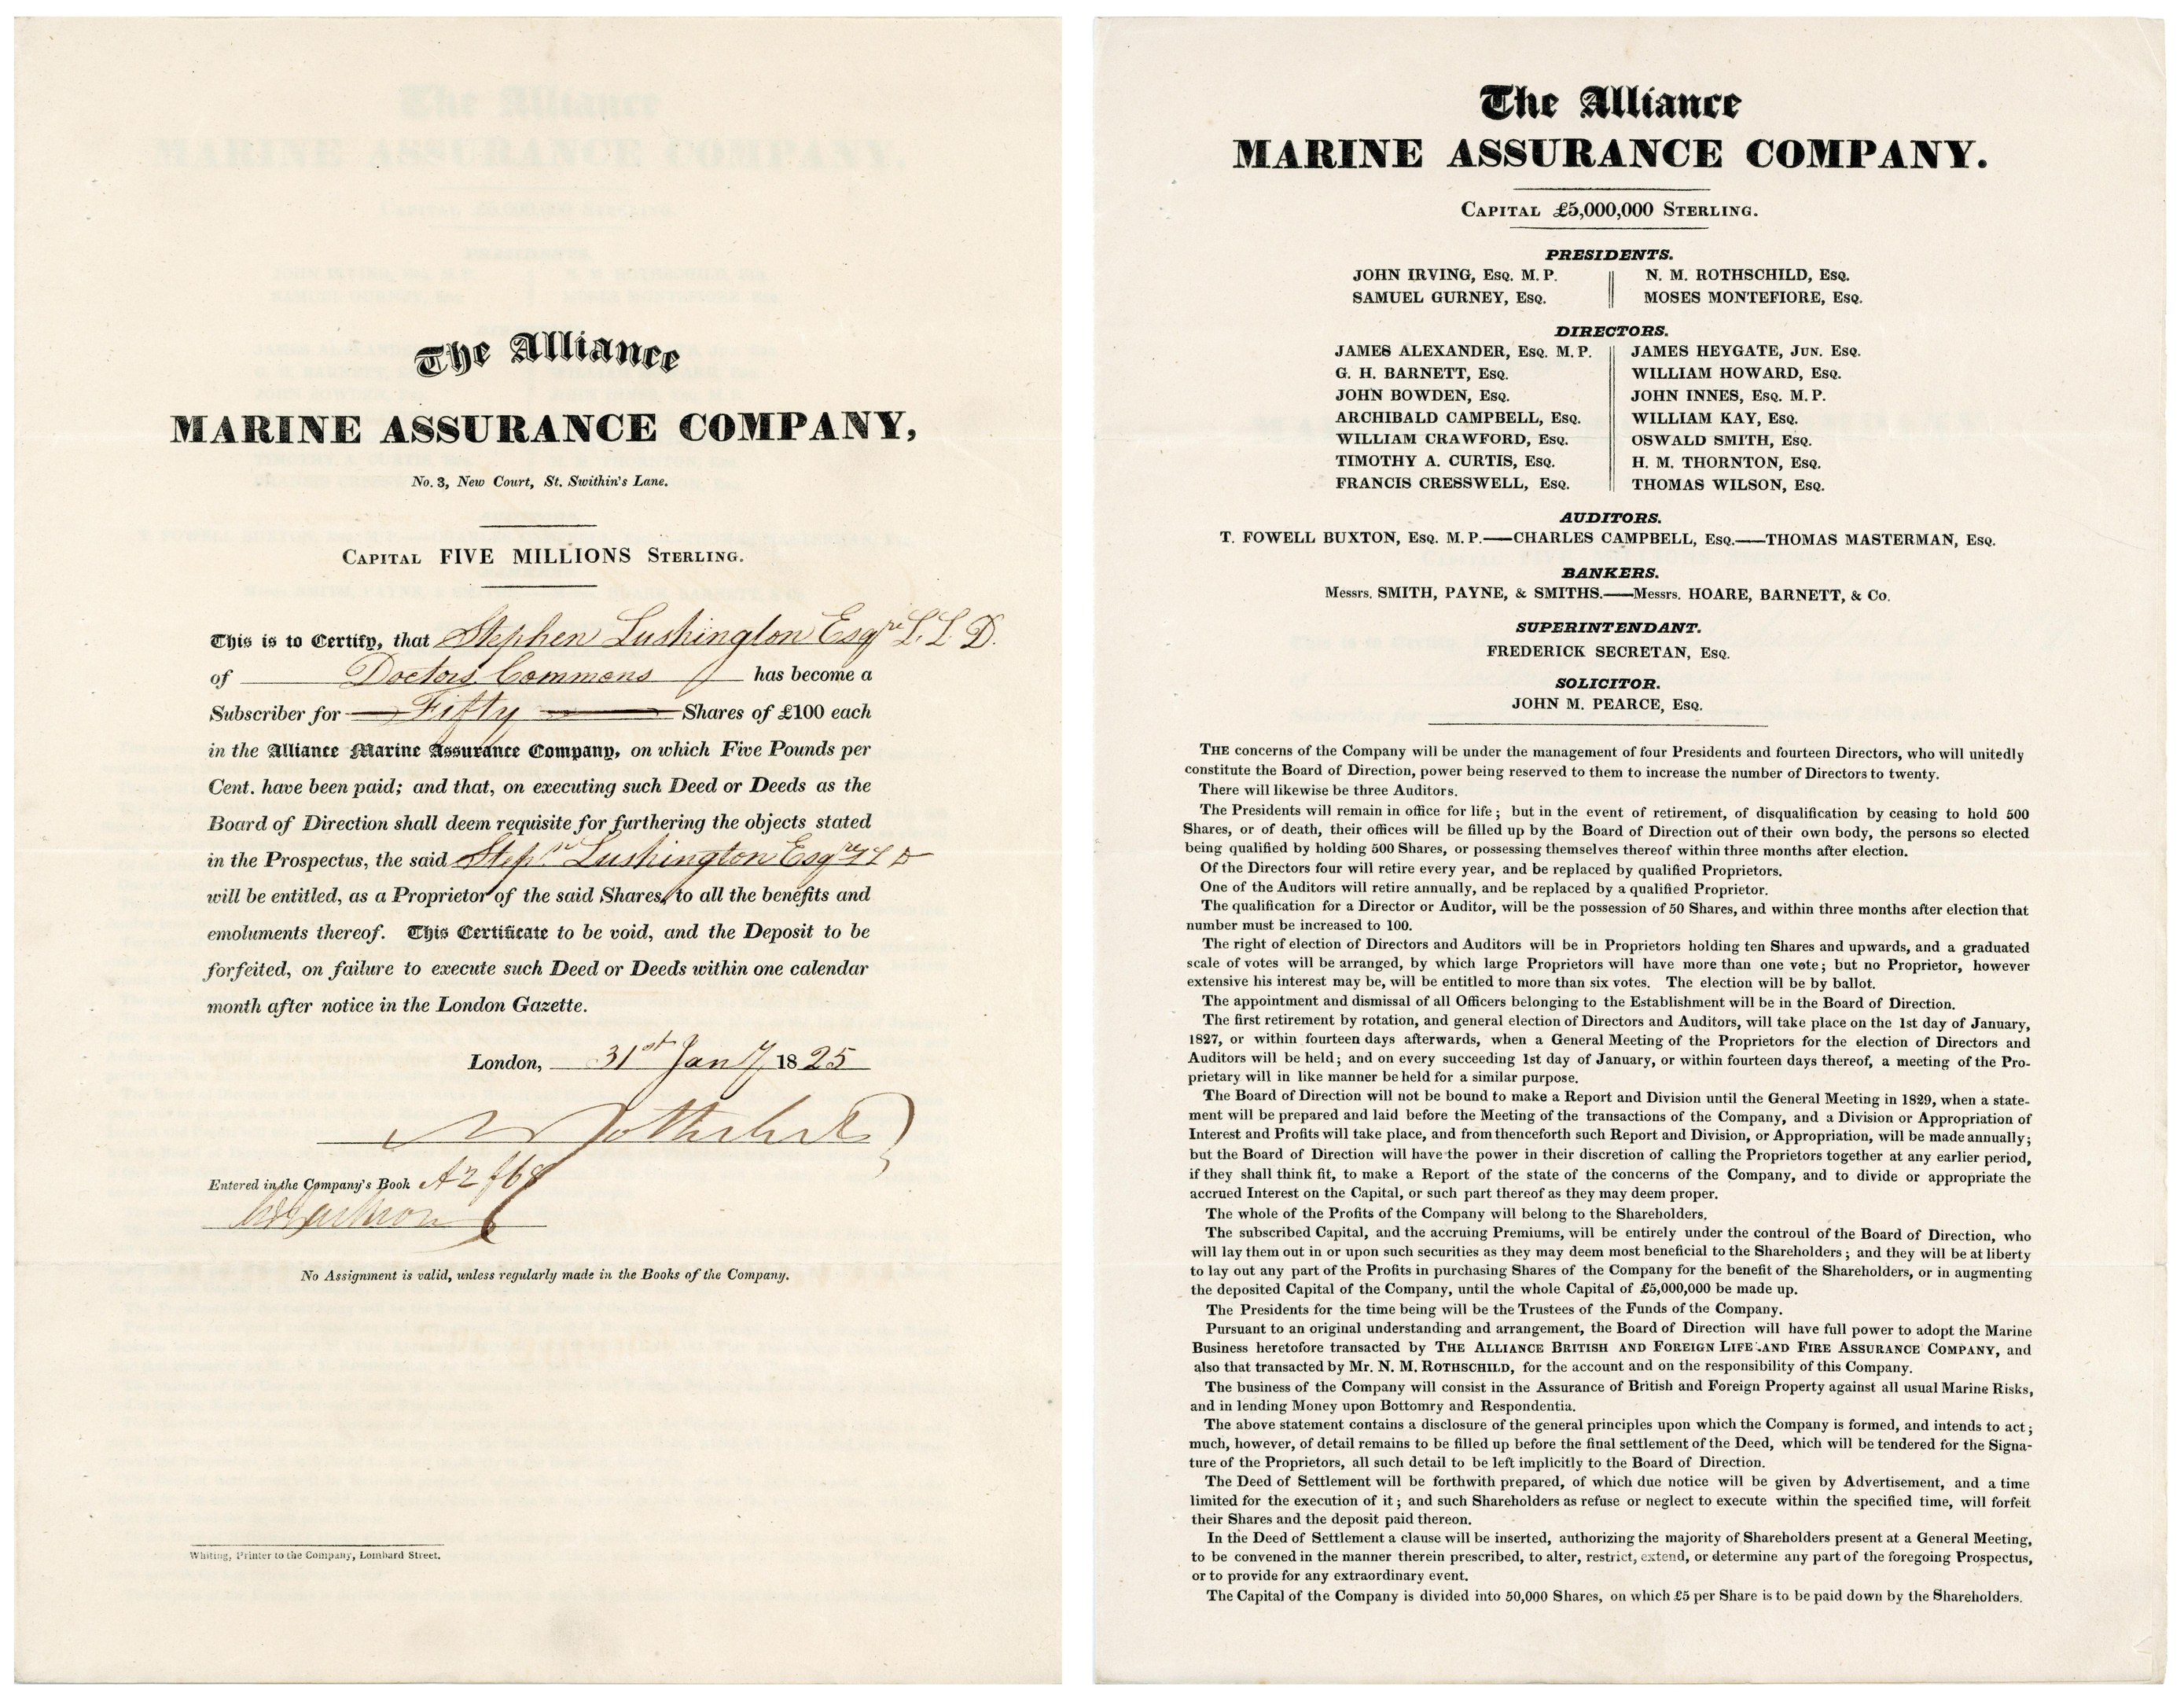 The Alliance
MARINE ASSURANCE COMPANY,
No. 3, New Court, St. Swithin's Lane.
CAPITAL FIVE MILLIONS STERLING.
This is to Certify, that Stephen Lushington Esqre L L D.
of Doctors Commons has become a
Subscriber for Fifty Shares of £100 each
in the Alliance Marine Assurance Company, on which Five Pounds per
Cent. have been paid; and that, on executing such Deed or Deeds as the
Board of Direction shall deem requisite for furthering the objects stated
in the Prospectus, the said Stepn Lushington Esqre LLD
will be entitled, as a Proprietor of the said Shares, to all the benefits and
emoluments thereof. This Certificate to be void, and the Deposit to be
forfeited, on failure to execute such Deed or Deeds within one calendar
month after notice in the London Gazette.
London, 31st Jany 1825
Entered in the Company's Book A2 f68
No Assignment is valid, unless regularly made in the Books of the Company.
Whiting, Printer to the Company, Lombard Street.
The Alliance
MARINE ASSURANCE COMPANY.
CAPITAL £5,000,000 STERLING.
PRESIDENTS.
JOHN IRVING, ESQ. M. P. N. M. ROTHSCHILD, ESQ.
SAMUEL GURNEY, ESQ. MOSES MONTEFIORE, ESQ.
DIRECTORS.
JAMES ALEXANDER, ESQ. M. P. JAMES HEYGATE, JUN. ESQ.
G. H. BARNETT, ESQ. WILLIAM HOWARD, ESQ.
JOHN BOWDEN, ESQ. JOHN INNES, ESQ. M. P.
ARCHIBALD CAMPBELL, ESQ. WILLIAM KAY, ESQ.
WILLIAM CRAWFORD, ESQ. OSWALD SMITH, ESQ.
TIMOTHY A. CURTIS, ESQ. H. M. THORNTON, ESQ.
FRANCIS CRESSWELL, ESQ. THOMAS WILSON, ESQ.
AUDITORS.
T. FOWELL BUXTON, ESQ. M. P.—CHARLES CAMPBELL, ESQ.—THOMAS MASTERMAN, ESQ.
BANKERS.
Messrs. SMITH, PAYNE, & SMITHS.—Messrs. HOARE, BARNETT, & Co.
SUPERINTENDANT.
FREDERICK SECRETAN, ESQ.
SOLICITOR.
JOHN M. PEARCE, ESQ.
THE concerns of the Company will be under the management of four Presidents and fourteen Directors, who will unitedly
constitute the Board of Direction, power being reserved to them to increase the number of Directors to twenty.
There will likewise be three Auditors.
The Presidents will remain in office for life; but in the event of retirement, of disqualification by ceasing to hold 500
Shares, or of death, their offices will be filled up by the Board of Direction out of their own body, the persons so elected
being qualified by holding 500 Shares, or possessing themselves thereof within three months after election.
Of the Directors four will retire every year, and be replaced by qualified Proprietors.
One of the Auditors will retire annually, and be replaced by a qualified Proprietor.
The qualification for a Director or Auditor, will be the possession of 50 Shares, and within three months after election that
number must be increased to 100.
The right of election of Directors and Auditors will be in Proprietors holding ten Shares and upwards, and a graduated
scale of votes will be arranged, by which large Proprietors will have more than one vote; but no Proprietor, however
extensive his interest may be, will be entitled to more than six votes. The election will be by ballot.
The appointment and dismissal of all Officers belonging to the Establishment will be in the Board of Direction.
The first retirement by rotation, and general election of Directors and Auditors, will take place on the 1st day of January,
1827, or within fourteen days afterwards, when a General Meeting of the Proprietors for the election of Directors and
Auditors will be held; and on every succeeding 1st day of January, or within fourteen days thereof, a meeting of the Pro-
prietary will in like manner be held for a similar purpose.
The Board of Direction will not be bound to make a Report and Division until the General Meeting in 1829, when a state-
ment will be prepared and laid before the Meeting of the transactions of the Company, and a Division or Appropriation of
Interest and Profits will take place, and from thenceforth such Report and Division, or Appropriation, will be made annually;
but the Board of Direction will have the power in their discretion of calling the Proprietors together at any earlier period,
if they shall think fit, to make a Report of the state of the concerns of the Company, and to divide or appropriate the
accrued Interest on the Capital, or such part thereof as they may deem proper.
The whole of the Profits of the Company will belong to the Shareholders.
The subscribed Capital, and the accruing Premiums, will be entirely under the controul of the Board of Direction, who
will lay them out in or upon such securities as they may deem most beneficial to the Shareholders; and they will be at liberty
to lay out any part of the Profits in purchasing Shares of the Company for the benefit of the Shareholders, or in augmenting
the deposited Capital of the Company, until the whole Capital of £5,000,000 be made up.
The Presidents for the time being will be the Trustees of the Funds of the Company.
Pursuant to an original understanding and arrangement, the Board of Direction will have full power to adopt the Marine
Business heretofore transacted by THE ALLIANCE BRITISH AND FOREIGN LIFE AND FIRE ASSURANCE COMPANY, and
also that transacted by Mr. N. M. ROTHSCHILD, for the account and on the responsibility of this Company.
The business of the Company will consist in the Assurance of British and Foreign Property against all usual Marine Risks,
and in lending Money upon Bottomry and Respondentia.
The above statement contains a disclosure of the general principles upon which the Company is formed, and intends to act;
much, however, of detail remains to be filled up before the final settlement of the Deed, which will be tendered for the Signa-
ture of the Proprietors, all such detail to be left implicitly to the Board of Direction.
The Deed of Settlement will be forthwith prepared, of which due notice will be given by Advertisement, and a time
limited for the execution of it; and such Shareholders as refuse or neglect to execute within the specified time, will forfeit
their Shares and the deposit paid thereon.
In the Deed of Settlement a clause will be inserted, authorizing the majority of Shareholders present at a General Meeting,
to be convened in the manner therein prescribed, to alter, restrict, extend, or determine any part of the foregoing Prospectus,
or to provide for any extraordinary event.
The Capital of the Company is divided into 50,000 Shares, on which £5 per Share is to be paid down by the Shareholders.